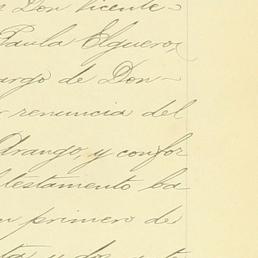 Don Vicente
Paula Elguero
argo de Don
renuncia del
Arango, y confor
testamento ba
primero de
y dos